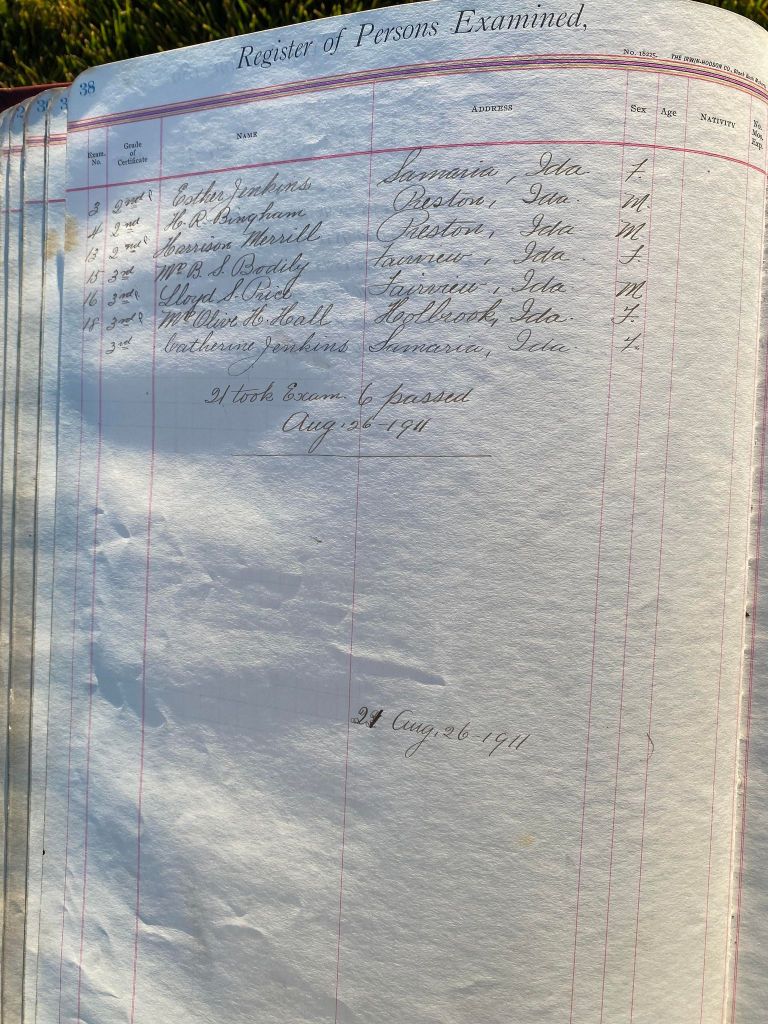 Register of Persons Examined,
38
No. 18225. THE IRWIN-HODSON CO.,
Exam. No. Grade of Certificate NAME ADDRESS Sex Age NATIVITY No. Mos. Exp.
3 2nd Esther Jenkins Samaria, Ida. F.
4 2nd H. R. Bingham Preston, Ida. M
13 2nd Harrison Merrill Preston, Ida M
15 3rd Mrs B. S. Bodily Fairview, Ida. F.
16 3rd Lloyd S. Price Fairview, Ida M
18 3rd Mrs Olive H. Hall Holbrook, Ida. F.
3rd Catherine Jenkins Samaria, Ida. F.
21 took Exam. 6 passed
Aug. 26-1911
21 Aug. 26-1911